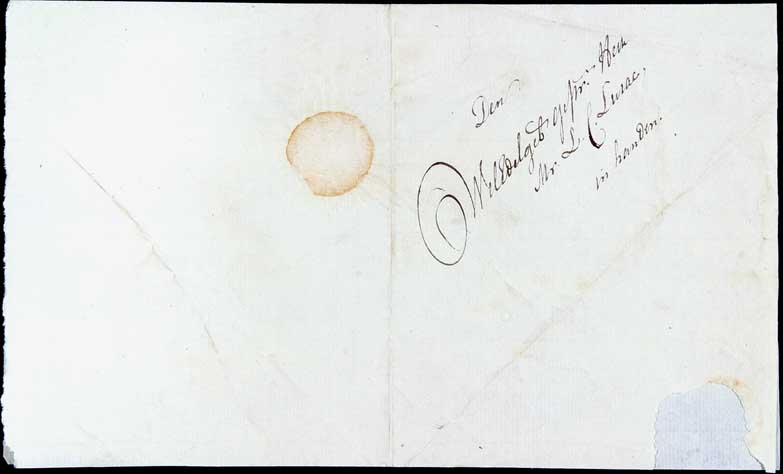 Den
WelEdelgeb gestr. Heer
Mr. L. C. Luzac,
in handen.